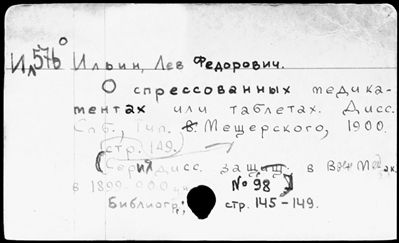 Ил576 Ильин, Лев Федорович.
О спрессованных медика-
ментах или таблетах. Дисс.
Спб., Тип. в. Мещерского, 1900.
стр. 149.
(Серия дисс. защищ. в В
в 1899- №98)
Библиогр: стр. 145-149.